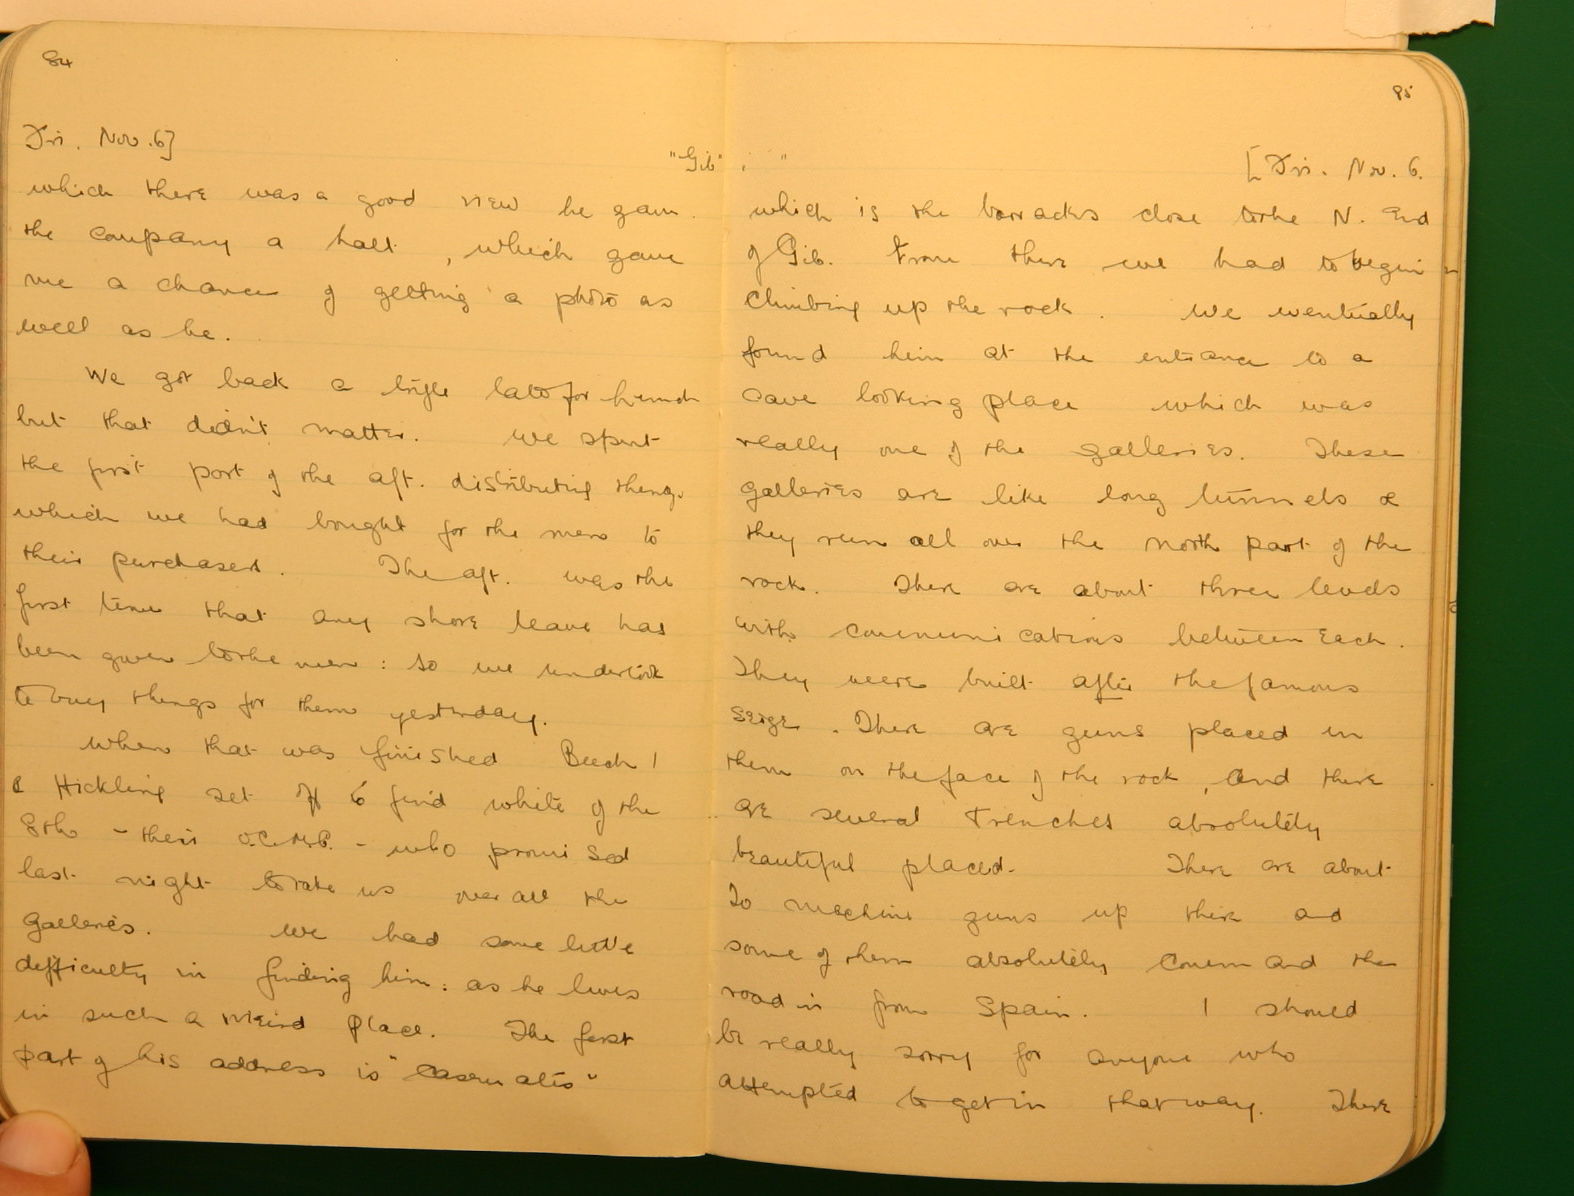 84
Fri. Nov. 6]
"Gib"
which there was a good view he gave
the company a halt, which gave
me a chance of getting a photo as
well as he.
We got back a trifle late for lunch
but that didn't matter. We spent
the first part of the aft. distributing things
which we had bought for the men to
their purchasers. The aft. was the
first time that any shore leave has
been given to the men : so we undertook
to buy things for them yesterday.
When that was finished Beech I
& Hickling set off to find White of the
8th - their O.C.M.G. - who promised
last night to take us over all the
galleries. We had some little
difficulty in finding him : as he lives
in such a weird place. The first
part of his address is "Casemates"
85
[Fri. Nov. 6.
"
which is the barracks close to the N. End
of Gib. From there we had to begin
climbing up the rock. We eventually
found him at the entrance to a
cave looking place which was
really one of the galleries. These
galleries are like long tunnels &
they run all over the north part of the
rock. There are about three levels
with communications between each.
They were built after the famous
seige. There are guns placed in
them on the face of the rock, and there
are several trenches absolutely
beautiful placed. There are about
machine guns up there and
some of them absolutely command the
road in from Spain. I should
be really sorry for anyone who
attempted to get in that way. There